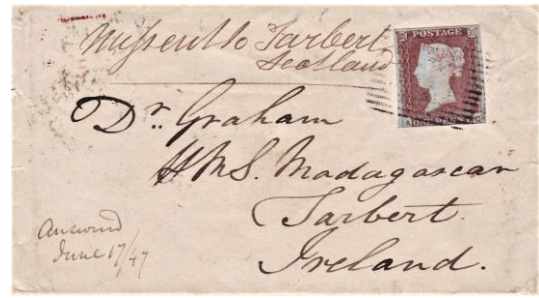 Missent to Tarbert
Scotland
POSTAGE
ONE PENNY
Dr. Graham
HMS. Madagascar
Tarbert.
Ireland.
Answered
June 17/47